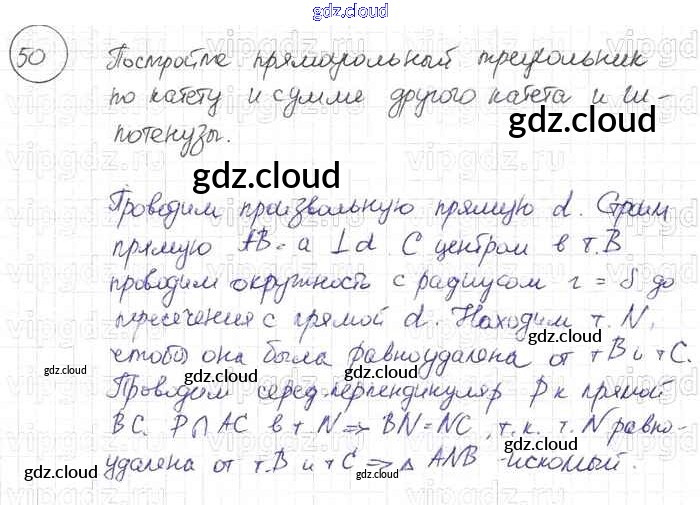 gdz.cloud
50 Постройте прямоугольный треугольник
по катету и сумме другого катета и ги-
потенузы.
gdz.cloud
gdz.cloud
Проводим произвольную прямую d. Строим
прямую AB = a ⊥ d. С центром в т. B
проводим окружность с радиусом r = S до
пересечения с прямой d. Находим т. N,
чтобы она была равноудалена от т B и т C.
gdz.cloud
gdz.cloud
gdz.cloud
Проводим серед. перпендикуляр P к прямой
BC. P ∩ AC в т N => BN = NC, т.к. т. N равно-
удалена от т. B и т C => △ ANB - искомый.
gdz.cloud
gdz.cloud
gdz.cloud
gdz.cloud